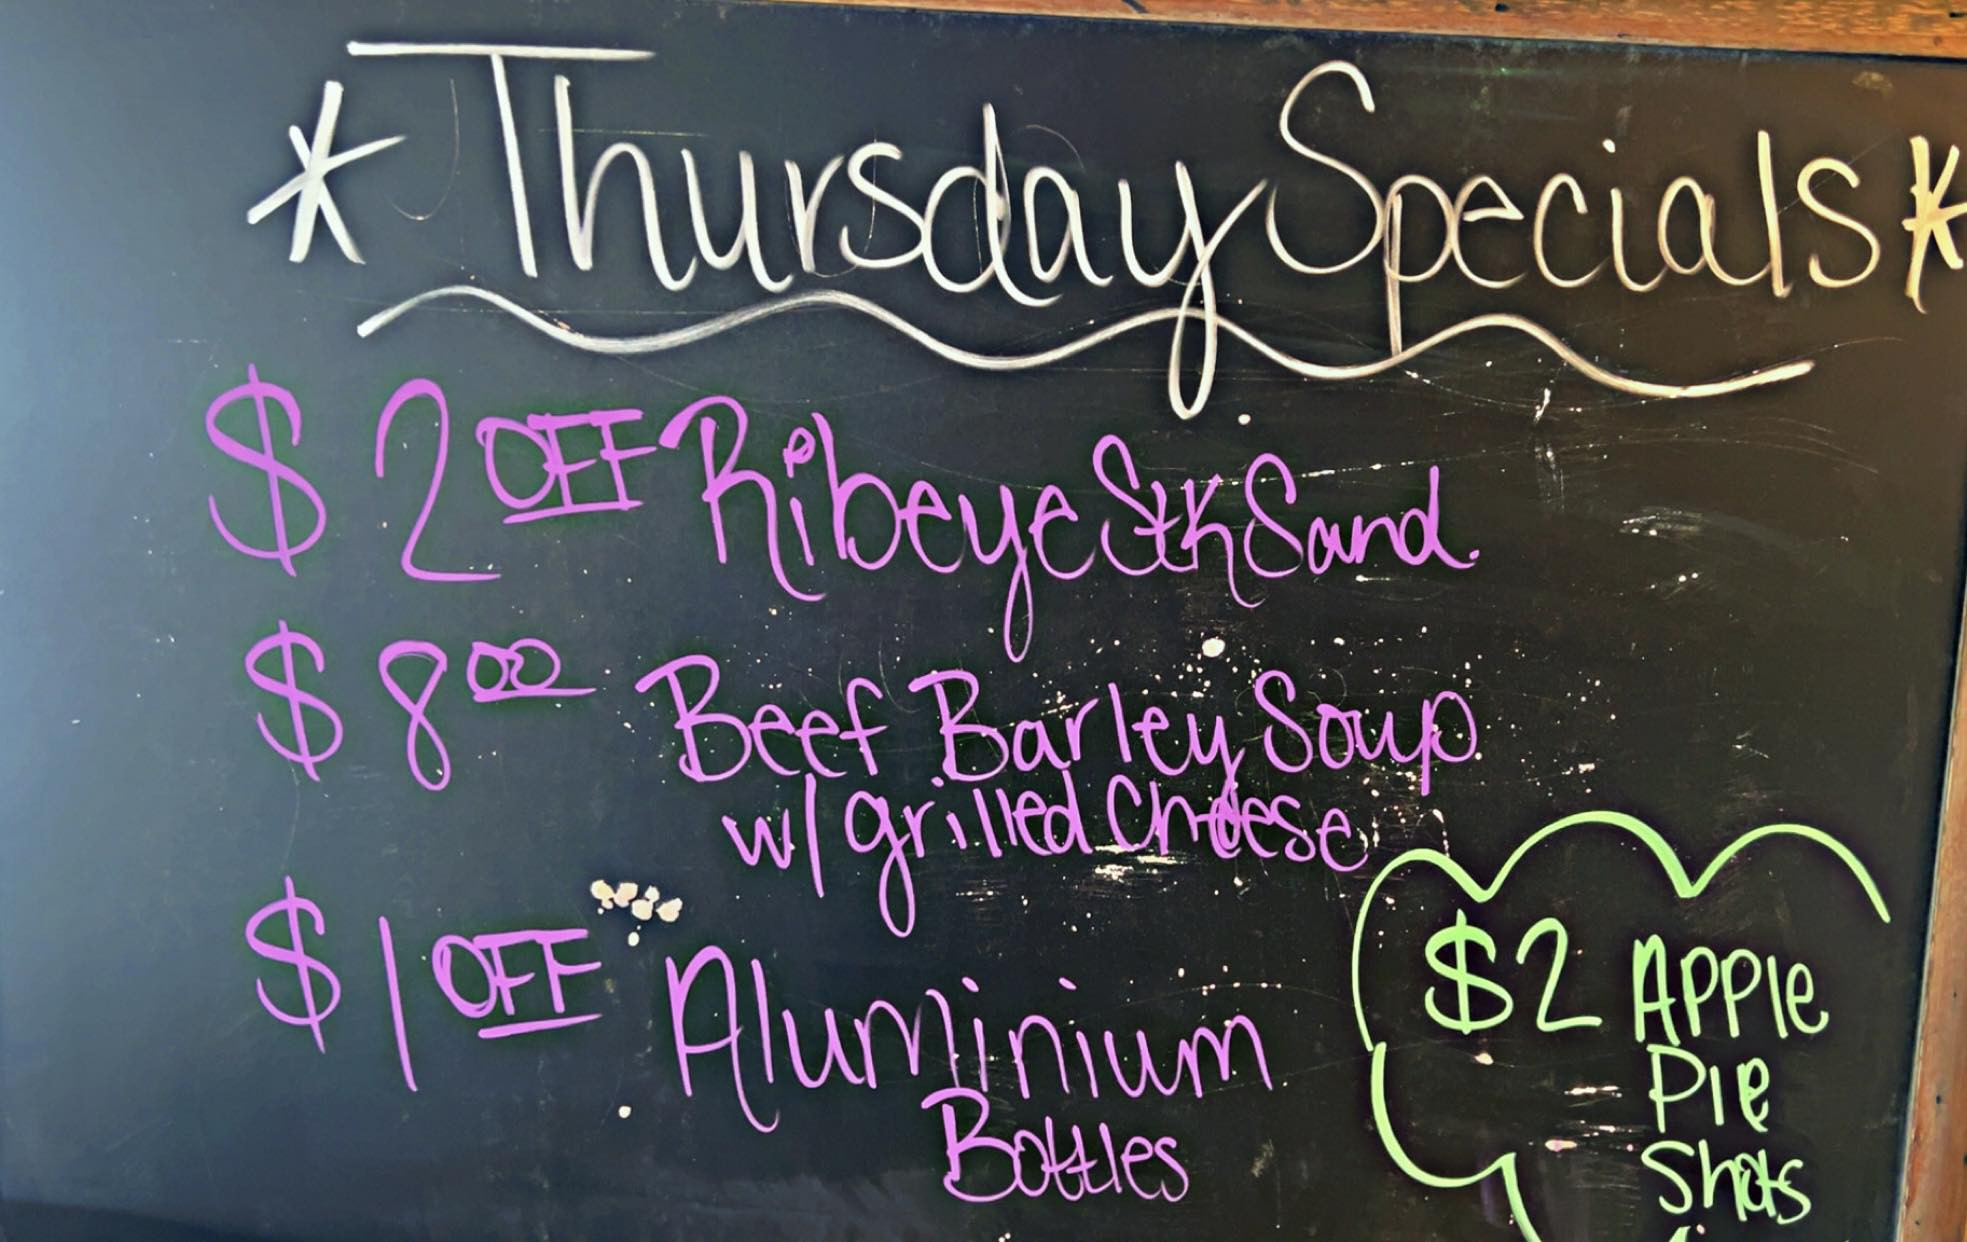 *Thursday Specials*
$2 OFF Ribeye Stk Sand.
$8.00 Beef Barley Soup
w/ grilled Cheese
$1 OFF Aluminium
Bottles
$2 Apple
Pie
Shots